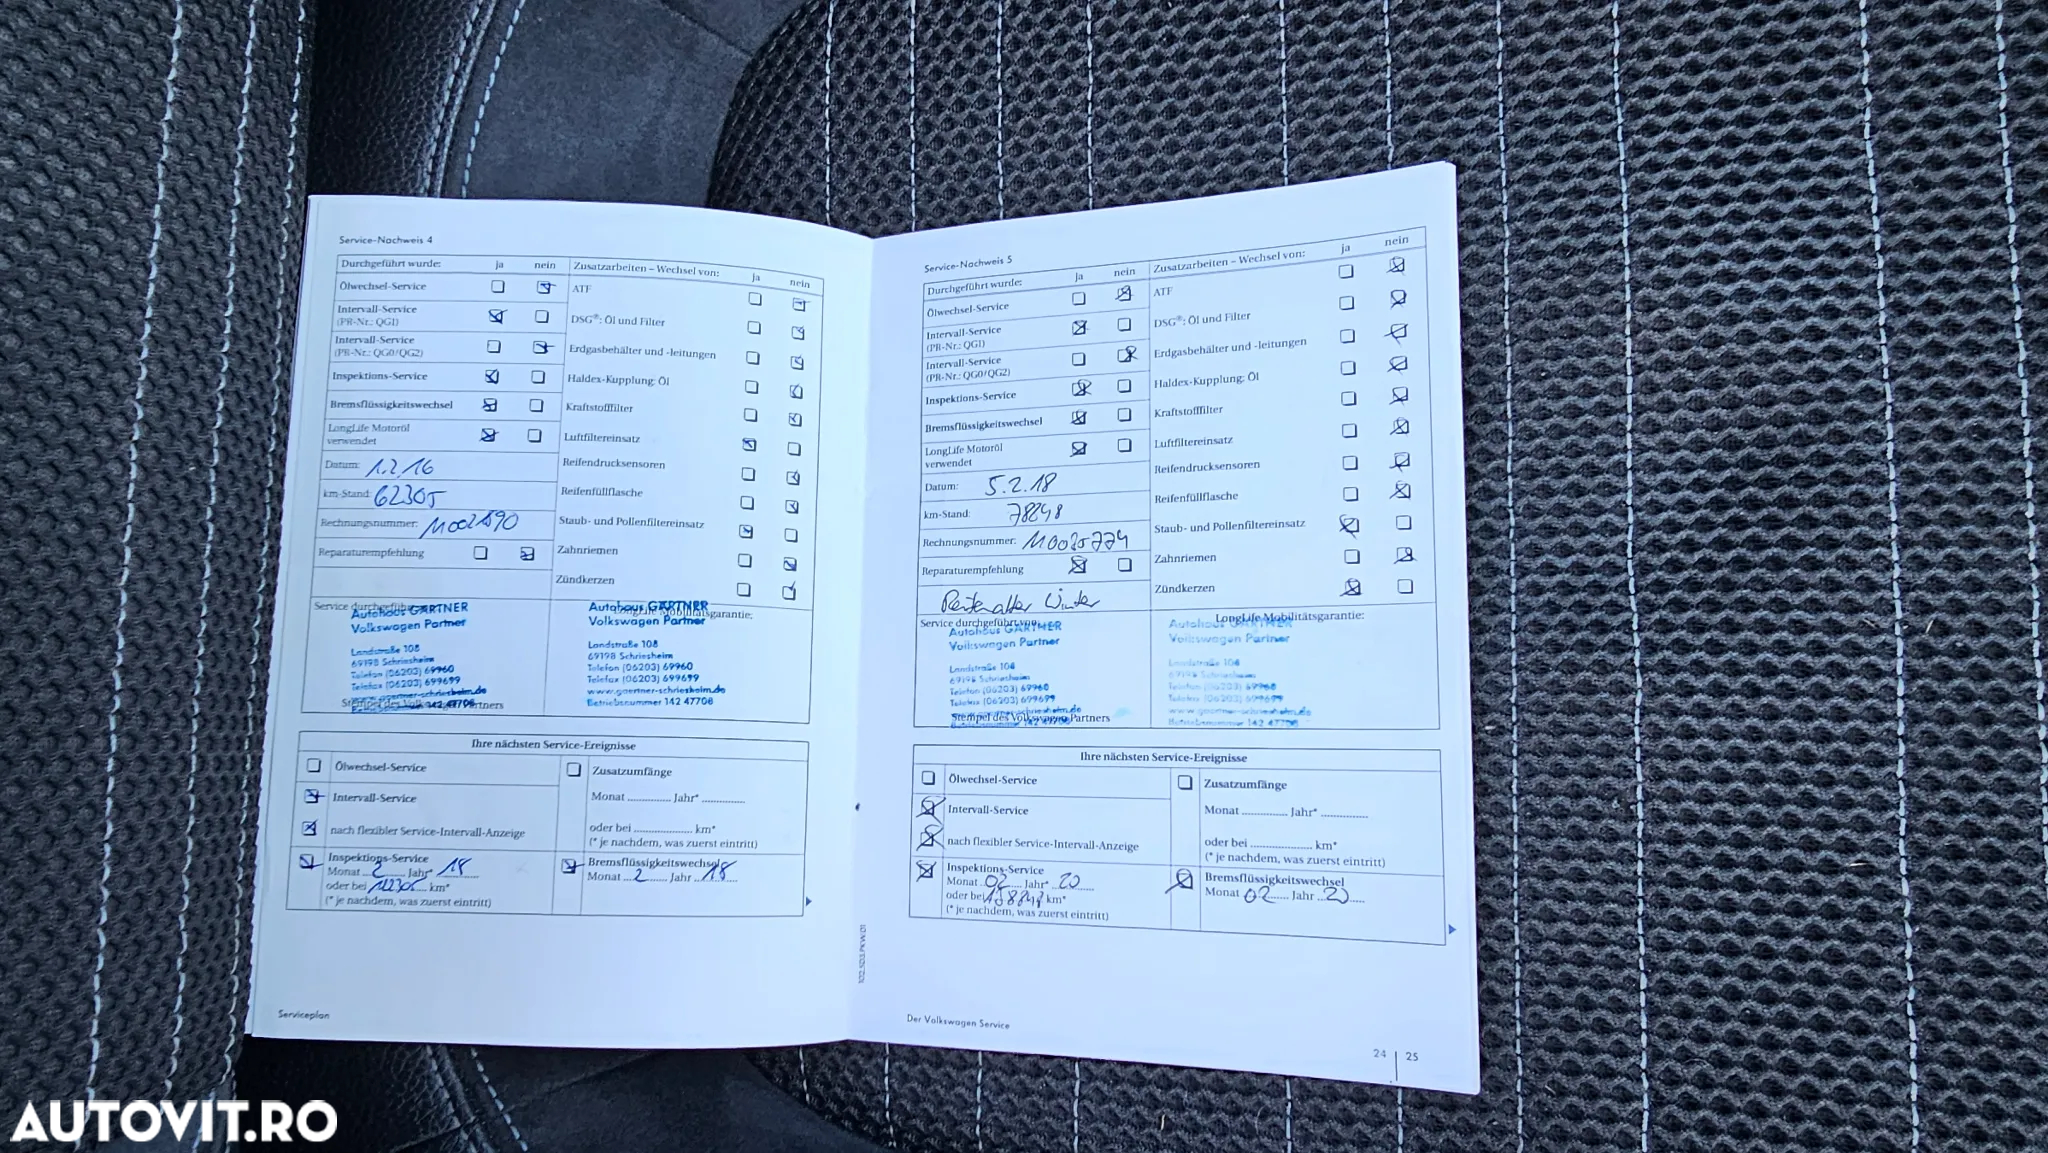 Service-Nachweis 4
Durchgeführt wurde: ja nein
Ölwechsel-Service
Intervall-Service
(PR-Nr.: QG1)
Intervall-Service
(PR-Nr.: QG0/QG2)
Inspektions-Service
Bremsflüssigkeitswechsel
LongLife Motoröl
verwendet
Datum: 1.2.16
km-Stand: 62305
Rechnungsnummer:
Reparaturempfehlung
Zusatzarbeiten – Wechsel von: ja nein
ATF
DSG®: Öl und Filter
Erdgasbehälter und -leitungen
Haldex-Kupplung: Öl
Kraftstofffilter
Luftfiltereinsatz
Reifendrucksensoren
Reifenfüllflasche
Staub- und Pollenfiltereinsatz
Zahnriemen
Zündkerzen
Service durchgeführt
Autohaus GÄRTNER
Volkswagen Partner
Landstraße 108
69198 Schriesheim
Telefon (06203) 69960
Telefax (06203) 699699
www.gaertner-schriesheim.de
Stempel des Volkswagen Partners
142 47708
LongLife Mobilitätsgarantie:
Autohaus GÄRTNER
Volkswagen Partner
Landstraße 108
69198 Schriesheim
Telefon (06203) 69960
Telefax (06203) 699699
www.gaertner-schriesheim.de
Betriebsnummer 142 47708
Ihre nächsten Service-Ereignisse
Ölwechsel-Service
Intervall-Service
nach flexibler Service-Intervall-Anzeige
Inspektions-Service
Monat 2 Jahr* 18
oder bei km*
(* je nachdem, was zuerst eintritt)
Zusatzumfänge
Monat Jahr*
oder bei km*
(* je nachdem, was zuerst eintritt)
Bremsflüssigkeitswechsel
Monat 2 Jahr 18
Serviceplan
102.5D3.PKW.01
Service-Nachweis 5
Durchgeführt wurde: ja nein
Ölwechsel-Service
Intervall-Service
(PR-Nr.: QG1)
Intervall-Service
(PR-Nr.: QG0/QG2)
Inspektions-Service
Bremsflüssigkeitswechsel
LongLife Motoröl
verwendet
Datum: 5.2.18
km-Stand: 78848
Rechnungsnummer:
Reparaturempfehlung
Zusatzarbeiten – Wechsel von: ja nein
ATF
DSG®: Öl und Filter
Erdgasbehälter und -leitungen
Haldex-Kupplung: Öl
Kraftstofffilter
Luftfiltereinsatz
Reifendrucksensoren
Reifenfüllflasche
Staub- und Pollenfiltereinsatz
Zahnriemen
Zündkerzen
Service durchgeführt von:
Autohaus GÄRTNER
Volkswagen Partner
Landstraße 108
69198 Schriesheim
Telefon (06203) 69960
Telefax (06203) 699699
Stempel des Volkswagen Partners
LongLife Mobilitätsgarantie:
Autohaus GÄRTNER
Volkswagen Partner
Landstraße 108
69198 Schriesheim
Telefon (06203) 69960
Telefax (06203) 699699
www.gaertner-schriesheim.de
Betriebsnummer 142 47708
Ihre nächsten Service-Ereignisse
Ölwechsel-Service
Intervall-Service
nach flexibler Service-Intervall-Anzeige
Inspektions-Service
Monat 02 Jahr* 20
oder bei km*
(* je nachdem, was zuerst eintritt)
Zusatzumfänge
Monat Jahr*
oder bei km*
(* je nachdem, was zuerst eintritt)
Bremsflüssigkeitswechsel
Monat 02 Jahr 20
Der Volkswagen Service
24 | 25
AUTOVIT.RO